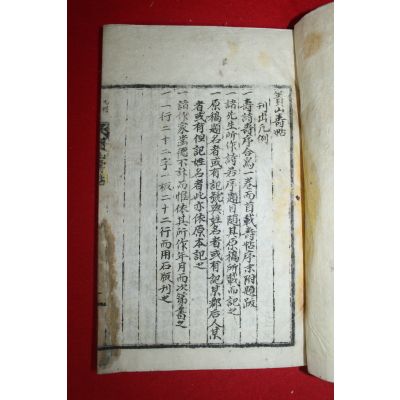 蕢山壽帖
刊出凡例
一壽詩壽序合爲一卷而首載壽帖序末附題跋
一諸先生所作詩若序題目隨其原稿所載而記之
一原稿題名者或有記號與姓名者或有記某郡后人某
者或有但記姓名者此亦依原本記之
一諸作家坐遷不許而惟依其所作年月而次第書之
一一行二十二字一板二十二行而用石版刊之